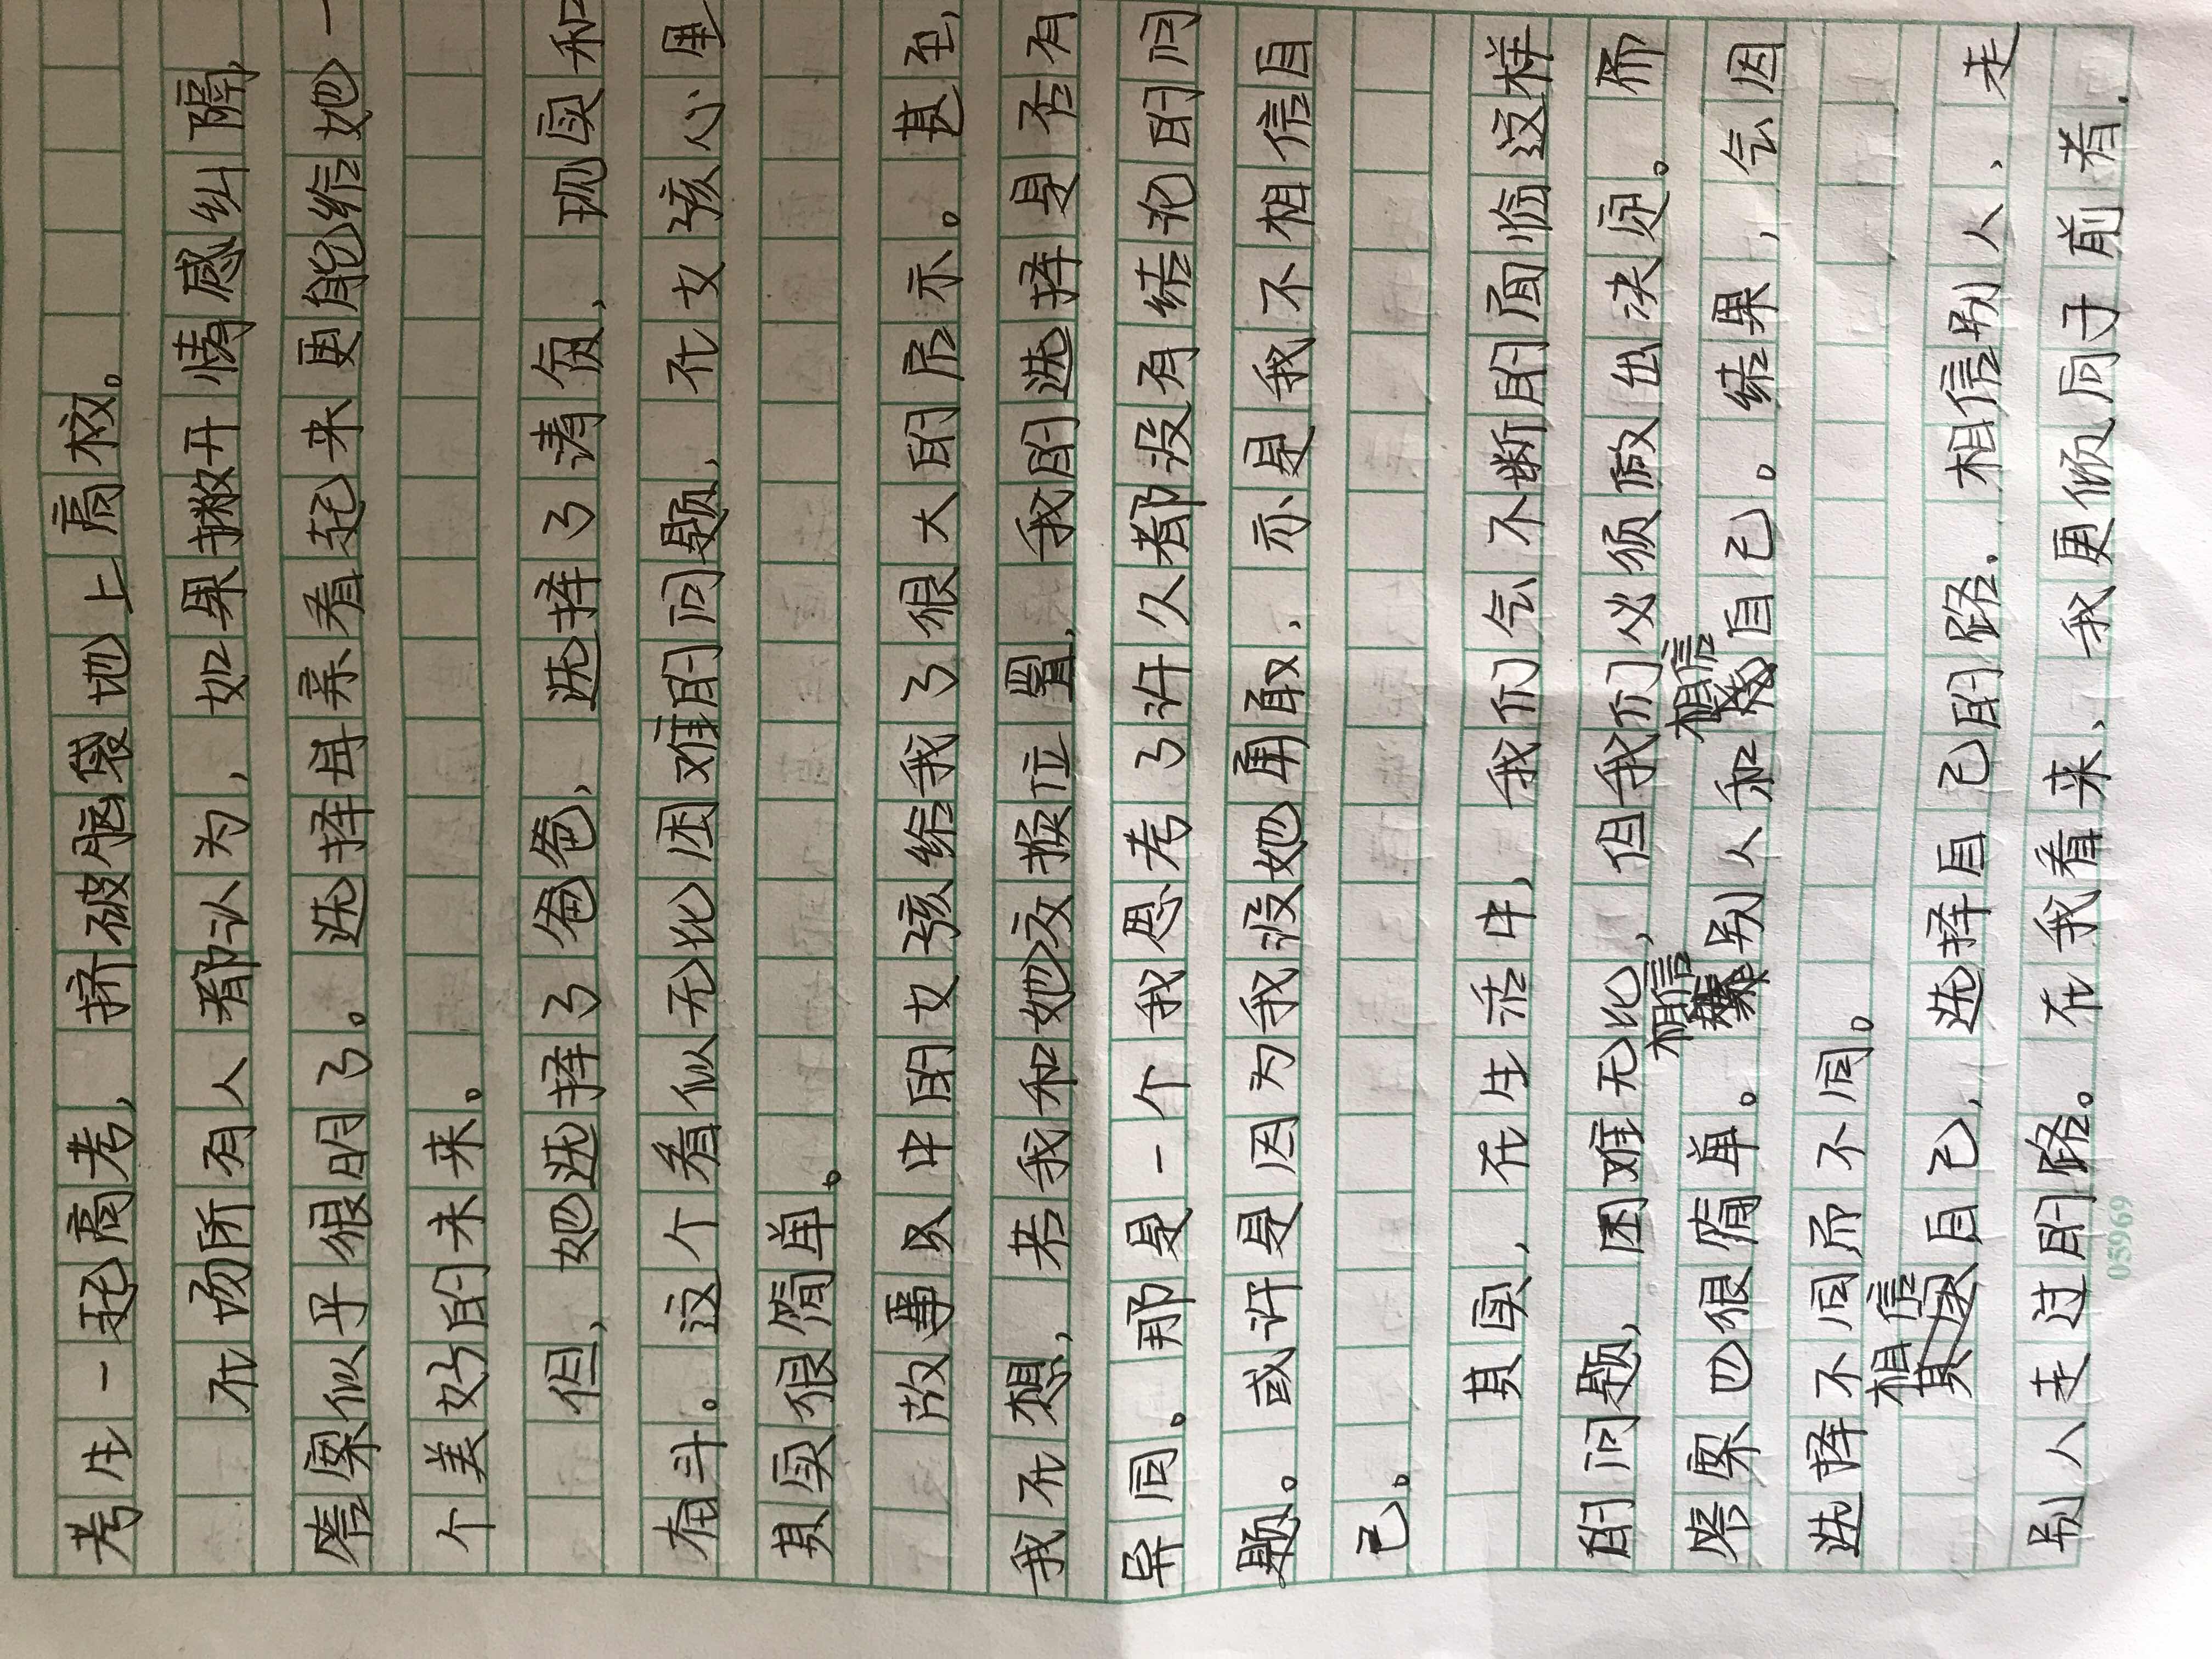 考生一起高考，挤破脑袋地上高校。
在场所有人都认为，如果撇开情感纠隔，
答案似乎很明了。选择母亲看起来更能给她一
个美好的未来。
但，她选择了爸爸，选择了清贫，现实和
奋斗。这个看似无比困难的问题，在女孩心里
其实很简单。
故事中的女孩给我了很大的启示。甚至，
我在想，若我和她交换位置，我的选择是否有
异同。那是一个我思考了许久都没有结论的问
题。或许是因为我没她勇敢，亦是我不相信自
己。
其实，在生活中，我们会不断的面临这样
的问题，困难无比，但我们必须做出决定。而
答案也很简单。相信别人和相信自己。结果，会因
选择不同而不同。
相信自己，选择自己的路，相信别人，走
别人走过的路。在我看来，我更倾向于前者.
05969